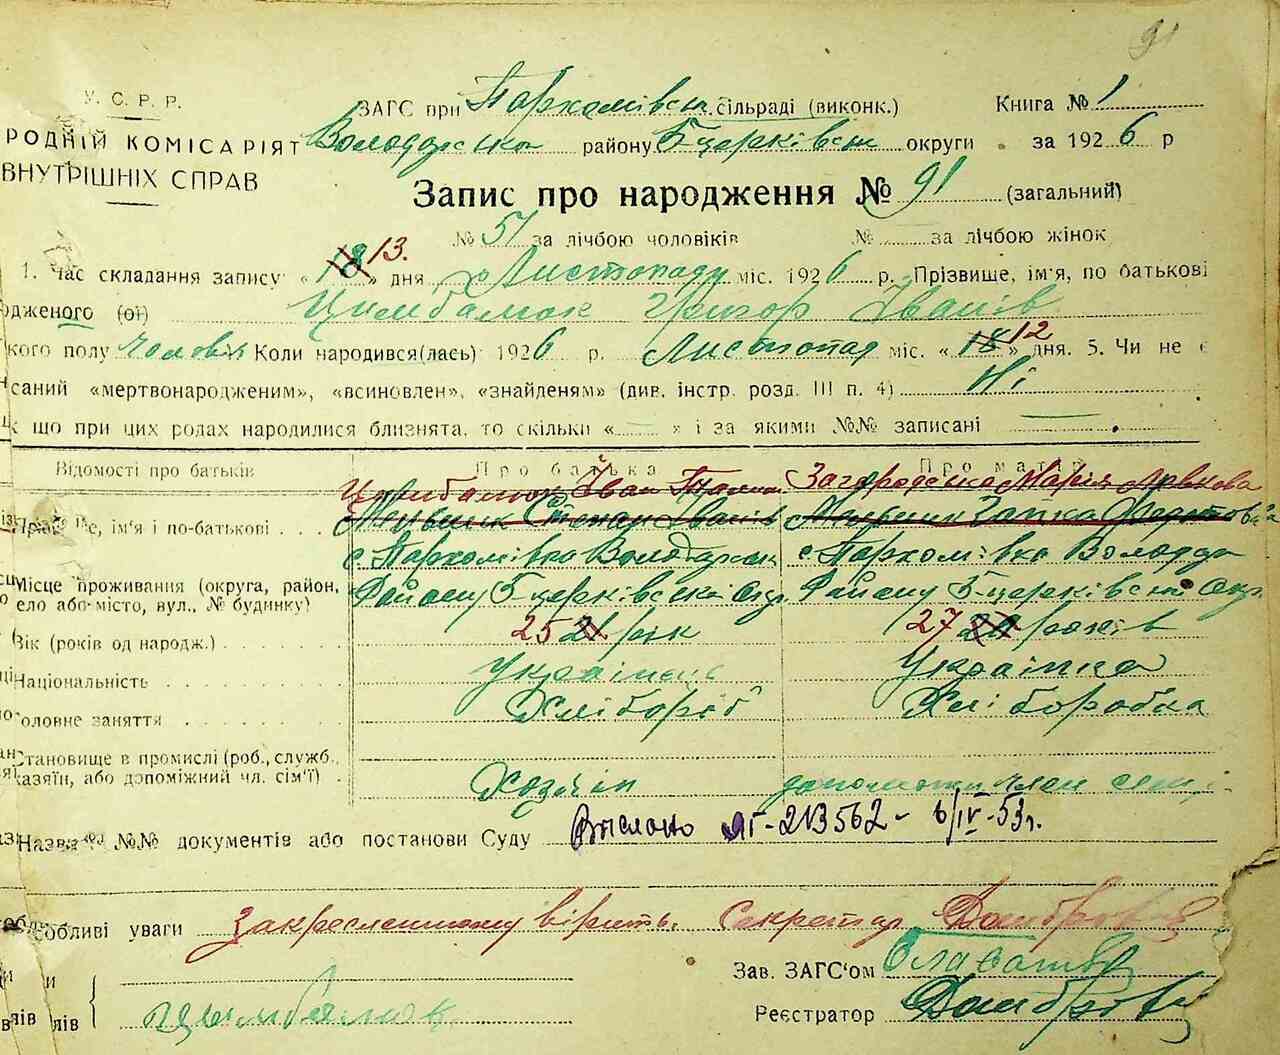 91
У. С. Р. Р.
РОДНІЙ КОМІСАРІЯТ
ВНУТРІШНІХ СПРАВ
ЗАГС при Пархомівськ. сільраді (виконк.) Книга № 1
Володарська району Б-церківськ округи за 1926 р
Запис про народження № 91 (загальний)
№ 51 за лічбою чоловіків № за лічбою жінок
1. Час складання запису: « 18 13. » дня Листопаду міс. 1926 р. Прізвище, ім'я, по батькові
одженого (ої) Цимбалюк Григор Іванів
кого полу Чоловік Коли народився(лась) 1926 р. Листопад міс. « 18 12 » дня. 5. Чи не є
саний «мертвонародженим», «всиновлен», «знайденям» (див. інстр. розд. III п. 4) Ні
що при цих родах народилися близнята, то скільки « — » і за якими №№ записані —
Відомості про батьків Про батька Про матір
Цимбалюк Іван Загородська Марія
ім'я і по-батькові Мельник Степан Іванів Мельник Ганка
с. Пархомівка Володарськ с. Пархомівка Волода
Місце проживання (округа, район, Району Б-церківської Окр. Району Б-церківської Окр.
ело або місто, вул., № будинку)
Вік (років од народж.) 25 21 рік 27 20 років
Національність Українець Українка
оловне заняття Хлібороб Хліборобка
Становище в промислі (роб., служб.,
хазяїн, або допоміжний чл. сім'ї) Хозяїн допоможни член семі
Назва №№ документів або постанови Суду Выслано ЯГ-213562 - 6/IV-53г.
собливі уваги Закресленному вірить. Секретар Домбровс
Зав. ЗАГС'ом
Цымбалюк Реєстратор Домбров